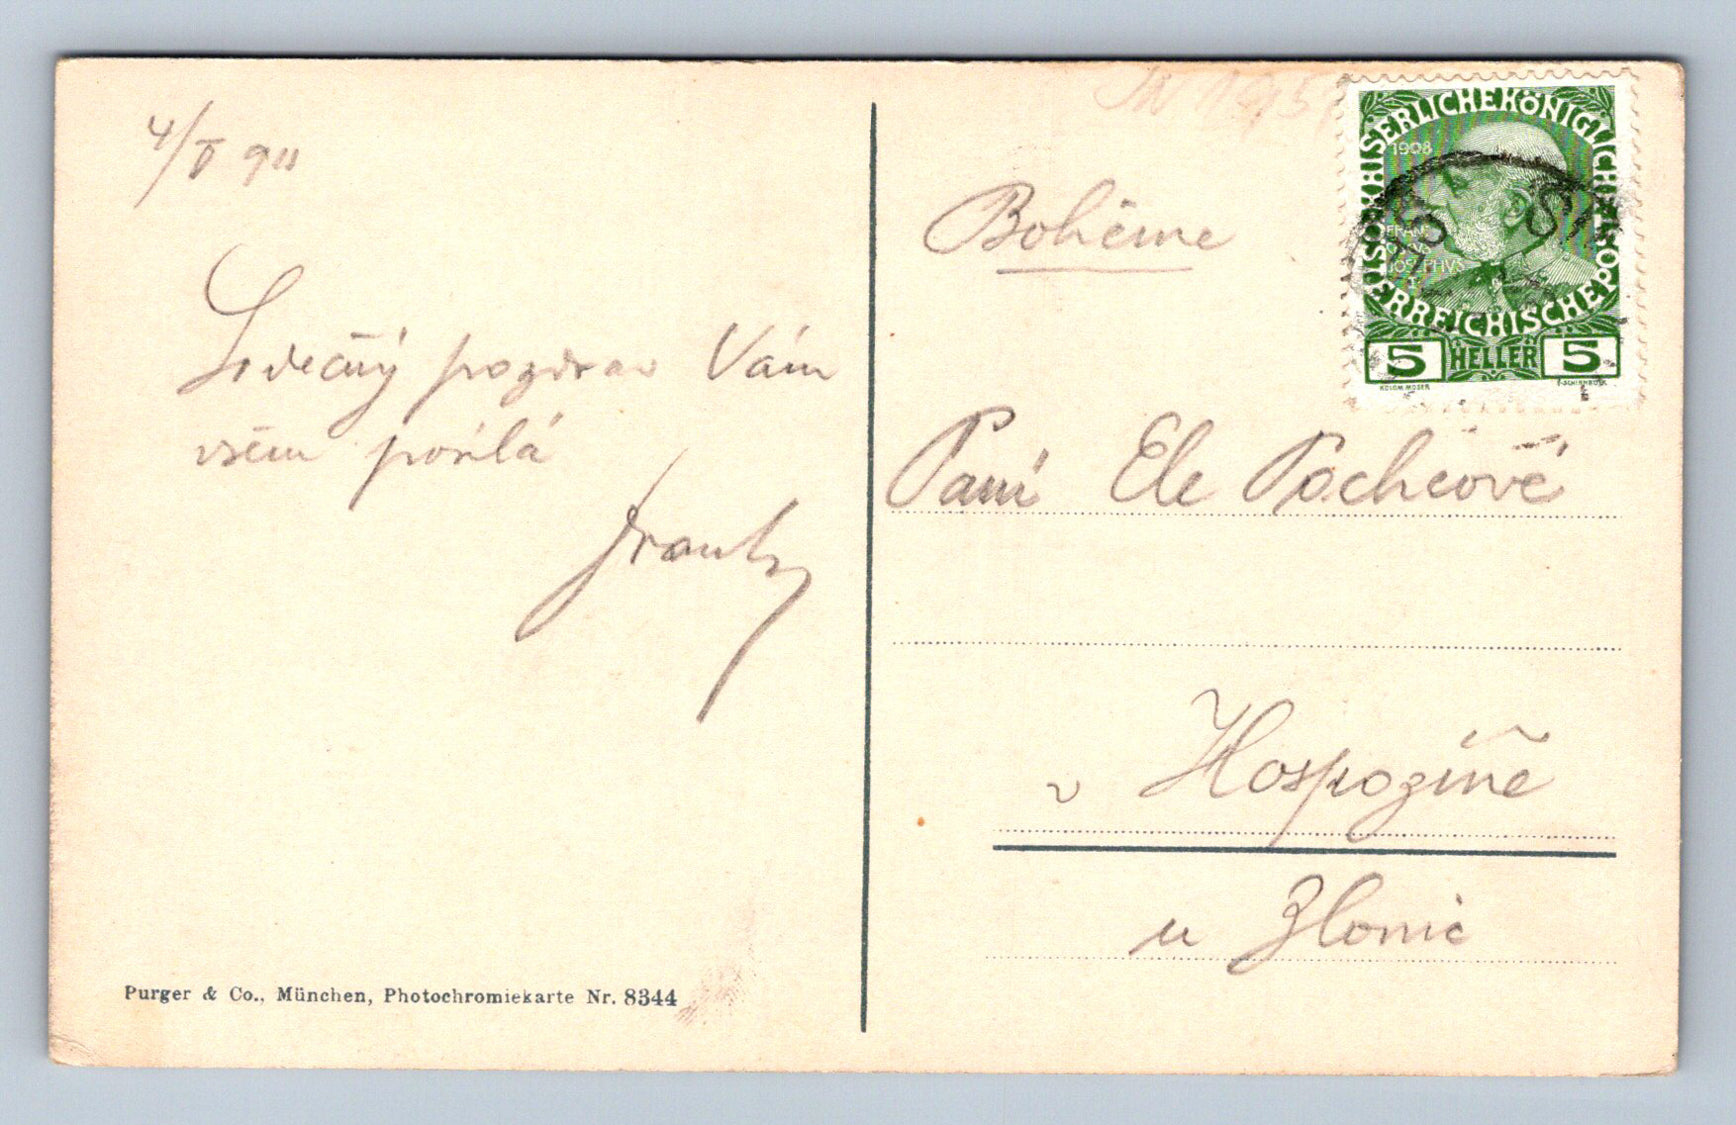 4/V 911
Srdečný pozdrav Vám
všem posílá
Purger & Co., München, Photochromiekarte Nr. 8344
KAISERLICHEKÖNIGLICHE
ÖSTERREICHISCHEPOST
1908
FRANC
IOSEPHVS
5 HELLER 5
KOLOM. MOSER
F. SCHIRNBÖCK
Bohême
Paní Ele Pochcově
v Hospozíně
u Zlonic